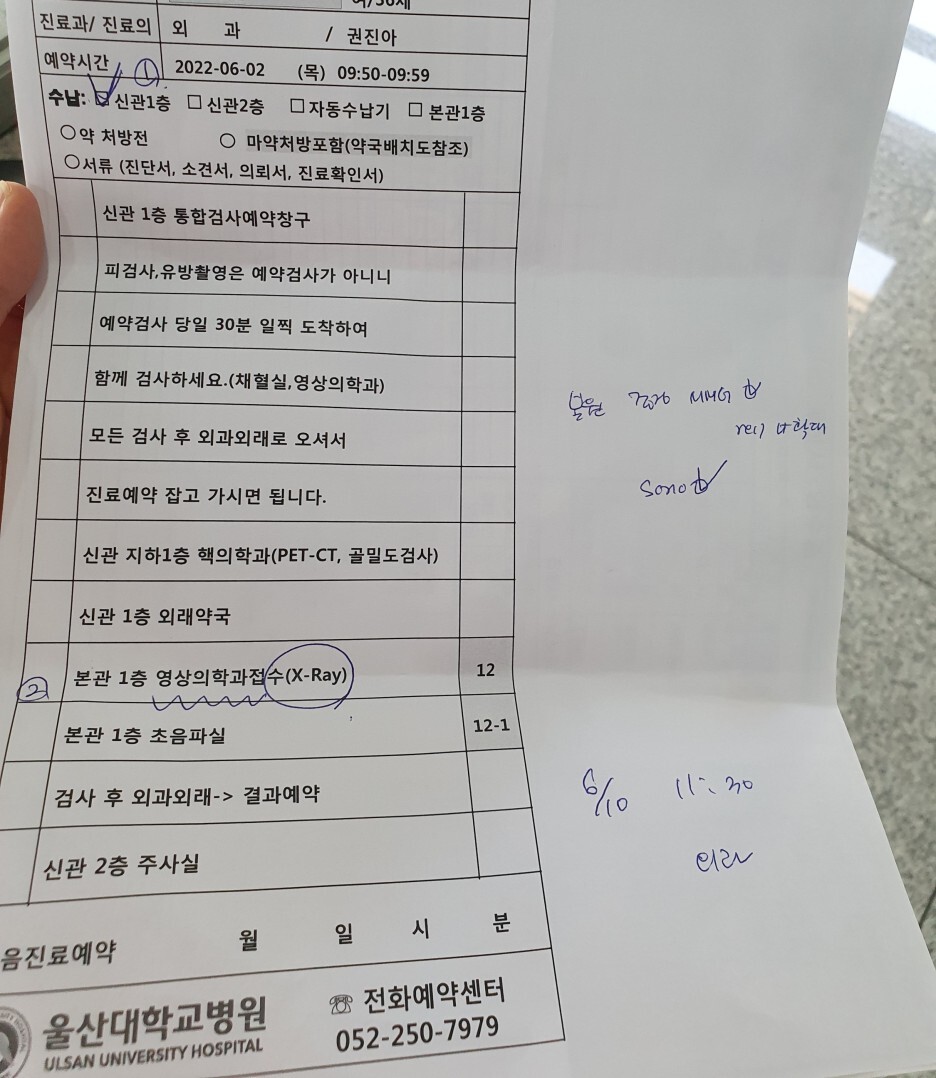 진료과/ 진료의 외 과 / 권진아
예약시간 ① 2022-06-02 (목) 09:50-09:59
수납: ☑ 신관1층 □ 신관2층 □ 자동수납기 □ 본관1층
○약 처방전 ○ 마약처방포함(약국배치도참조)
○서류 (진단서, 소견서, 의뢰서, 진료확인서)
신관 1층 통합검사예약창구
피검사,유방촬영은 예약검사가 아니니
예약검사 당일 30분 일찍 도착하여
함께 검사하세요.(채혈실,영상의학과)
본원 MMG
모든 검사 후 외과외래로 오셔서
sono
진료예약 잡고 가시면 됩니다.
신관 지하1층 핵의학과(PET-CT, 골밀도검사)
신관 1층 외래약국
② 본관 1층 영상의학과접수(X-Ray) 12
본관 1층 초음파실 12-1
검사 후 외과외래-> 결과예약
6/10 11:30
신관 2층 주사실
외래
음진료예약 월 일 시 분
울산대학교병원
ULSAN UNIVERSITY HOSPITAL
☏ 전화예약센터
052-250-7979